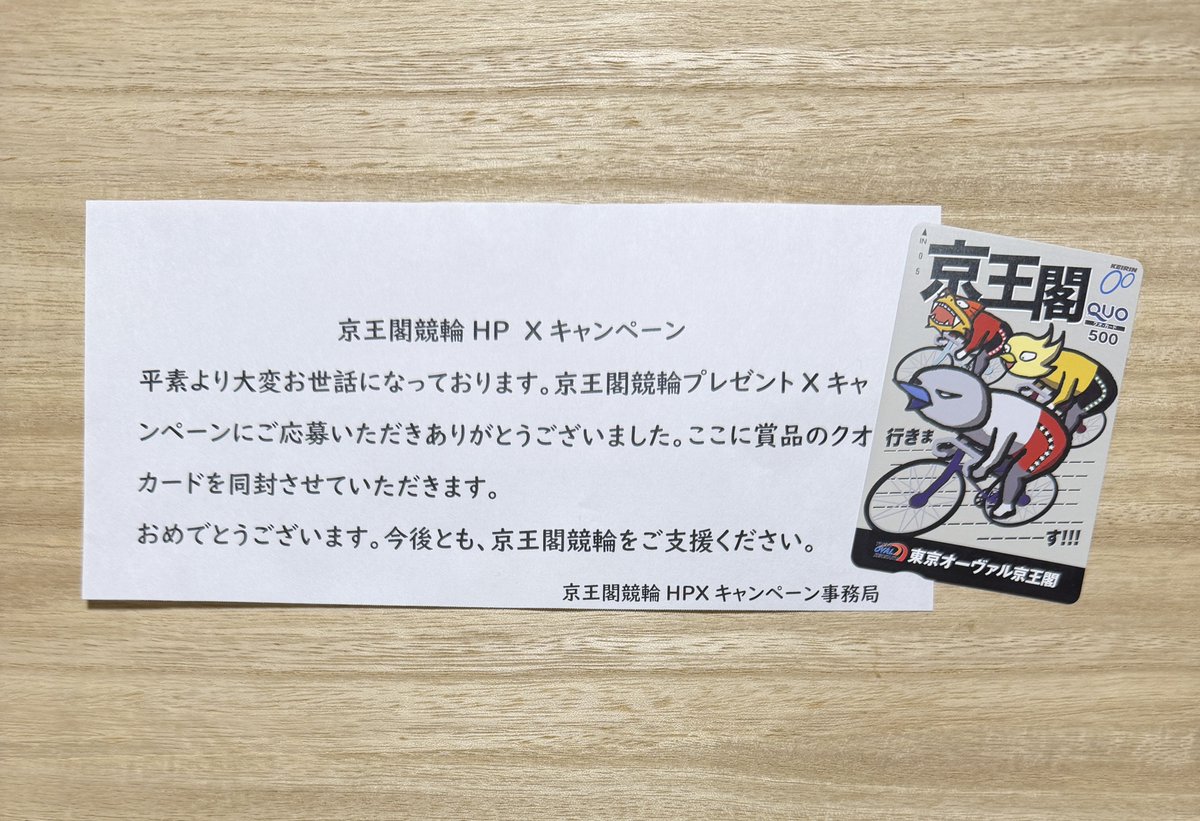 京王閣競輪 HP X キャンペーン
平素より大変お世話になっております。京王閣競輪プレゼント X キャ
ンペーンにご応募いただきありがとうございました。ここに賞品のクオ
カードを同封させていただきます。
おめでとうございます。今後とも、京王閣競輪をご支援ください。
京王閣競輪 HPX キャンペーン事務局
IN
0
5
京王閣
KEIRIN
QUO
クオ・カード
500
行きま
す!!!
OVAL
東京オーヴァル京王閣